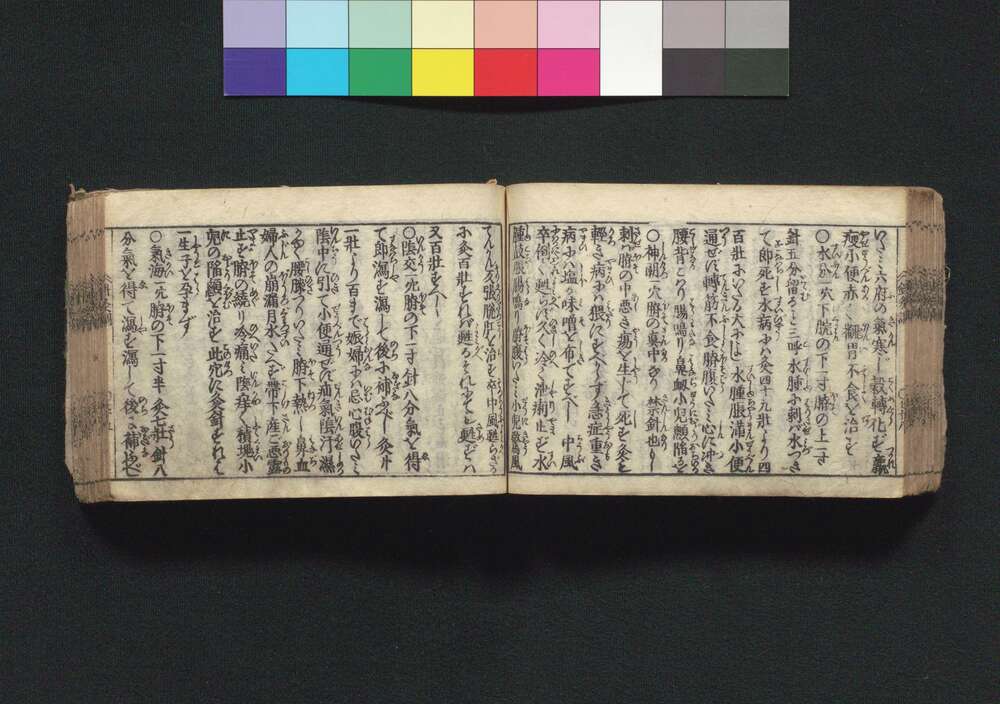 いたミ六府の氣寒じ穀轉化せず羸
痩小便赤く翻胃不食を治す
〇水分一穴下脘の下一寸臍の上一寸
針五分留ること三呼水腫ハ刺バ水つき
て即死す水病にハ灸四十九壯より四
百壯にいたる大によし水腫脹滿小便
通ぜず轉筋不食臍腹いたミ心に冲き
腰背こハり腸鳴り鼻衄小児顖陷る
〇神闕一穴臍の眞中なり禁針也
刺ハ臍の中悪き瘍を生じて死す灸を
輕き病にハ猥にすべからず急症重き
病にハ塩か味噌を布てすべし中風
卒倒て甦らず久く冷て泄痢止ず水
腫鼓脹腸鳴り臍腹いたミ小児驚風
てんかん張脱肛を治す卒中風甦らざる
に灸百壯すれバ甦るそれにても甦ずハ
又百壯すべし
〇陰交一穴臍の下一寸針八分氣を得
て即瀉を瀉して後に補ふべし灸廿
一壯より百まで娠婦にハ忌心腹いたミ
陰中に引て小便通ぜず疝氣陰汗濕
かゆく腰膝つりいたミ臍下熱し鼻血
婦人の崩漏月水たえず帯下産後悪露
止ず臍の繞り冷痛ミ陰痒く積塊小
児の陷顖を治す此穴に灸針をすれバ
一生子を孕まず
〇氣海一穴臍の下一寸半灸七壯針八
分氣を得て瀉を瀉して後に補ふべし